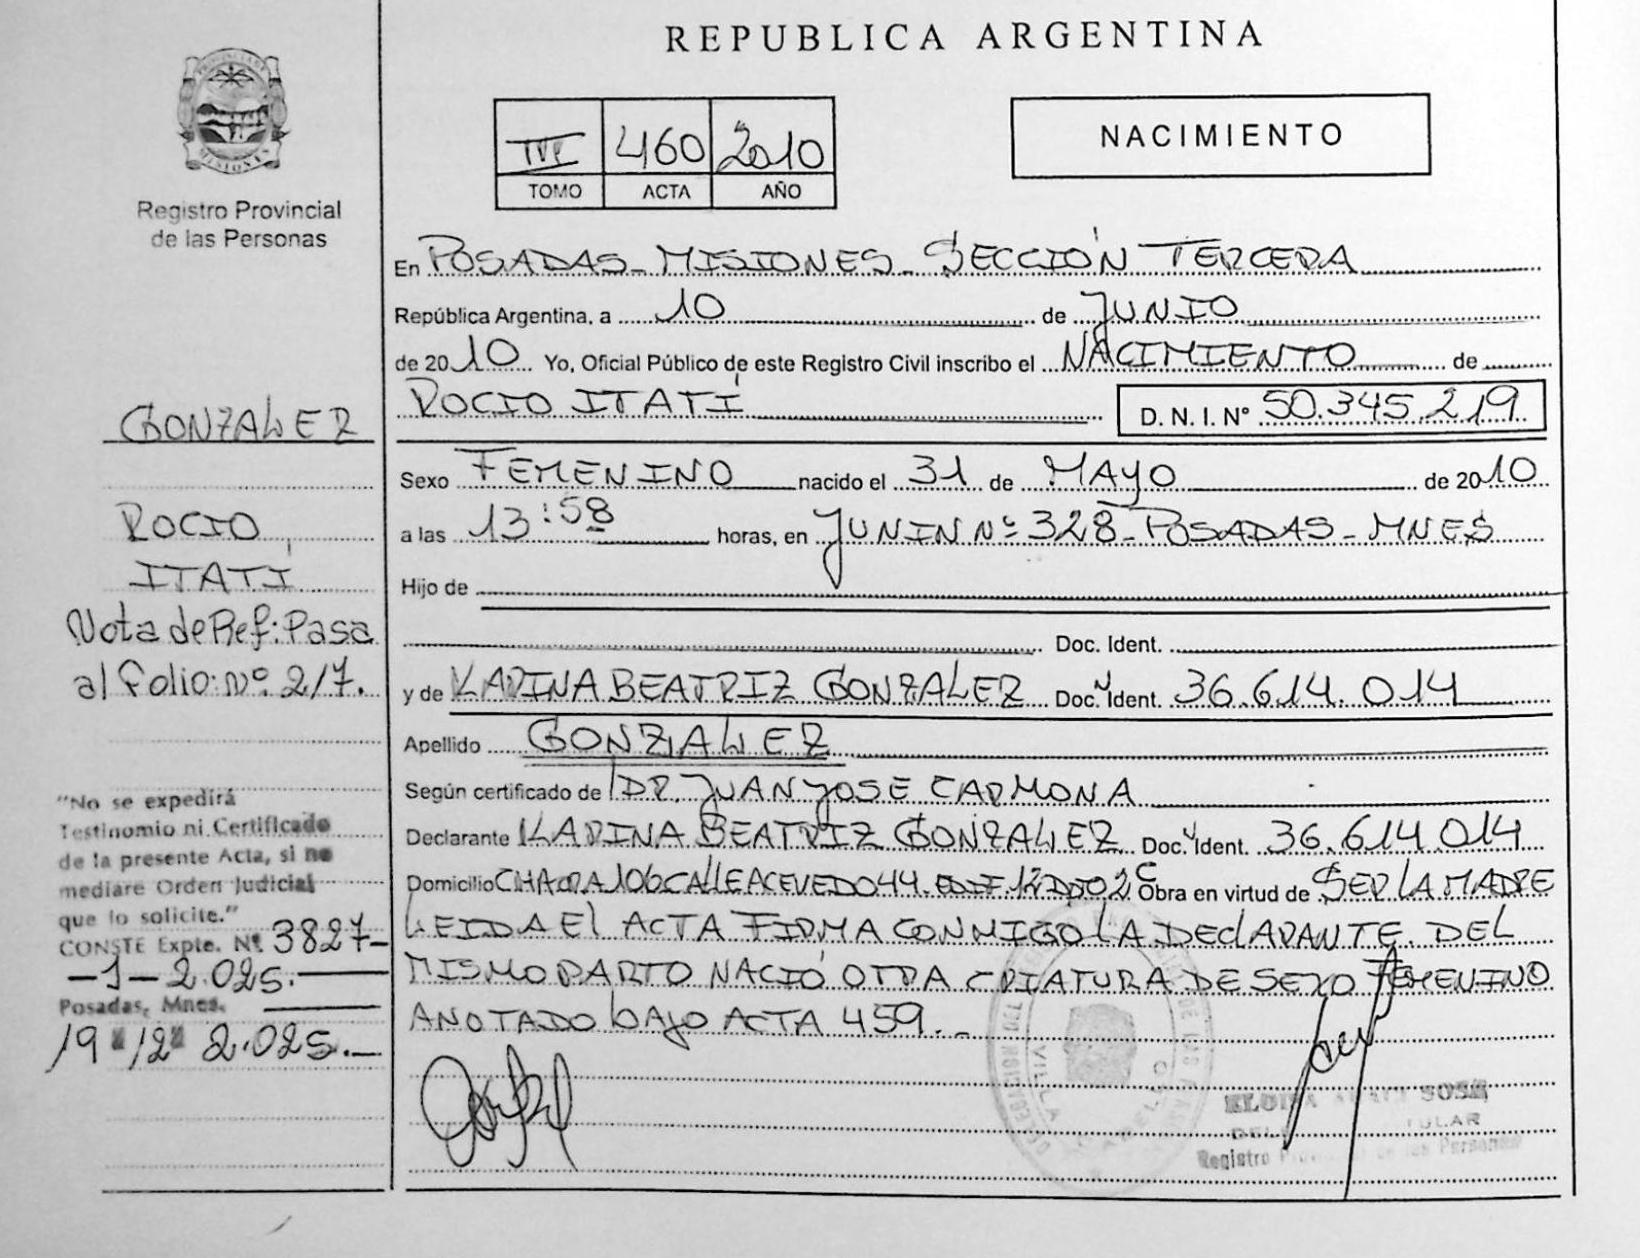 REPUBLICA ARGENTINA
PROVINCIA DE MISIONES
Registro Provincial
de las Personas
III 460 2010
TOMO ACTA AÑO
NACIMIENTO
En POSADAS - MISIONES - SECCIÓN TERCERA
República Argentina, a 10 de JUNIO
de 2010 Yo, Oficial Público de este Registro Civil inscribo el NACIMIENTO de
ROCIO ITATÍ D. N. I. Nº 50.345.219
Sexo FEMENINO nacido el 31 de MAYO de 2010
a las 13:58 horas, en JUNIN Nº 328 - POSADAS - MNES
Hijo de
Doc. Ident.
y de KARINA BEATRIZ GONZALEZ Doc. Ident. 36.614.014
Apellido GONZALEZ
Según certificado de DR. JUAN JOSE CARMONA
Declarante KARINA BEATRIZ GONZALEZ Doc. Ident. 36.614.014
Domicilio CHACRA 106 CALLE ACEVEDO 44. EDIF. 12 DPTO 2 C Obra en virtud de SER LA MADRE
LEIDA El ACTA FIRMA CONMIGO LA DEClARANTE. DEL
MISMO PARTO NACIÓ OTRA CRIATURA DE SEXO FEMENINO
ANOTADO bAJO ACTA 459.-
GONZALEZ
ROCIO
ITATÍ
Nota de Ref: Pasa
al folio: nº 2/7.
"No se expedirá
Testinomio ni Certificado
de la presente Acta, si no
mediare Orden Judicial
que lo solicite."
CONSTE Expte. Nº 3827-
-J-2.025.
Posadas, Mnes.
19 12 2.025.-
ELOISA SOSA
Registro de las Personas